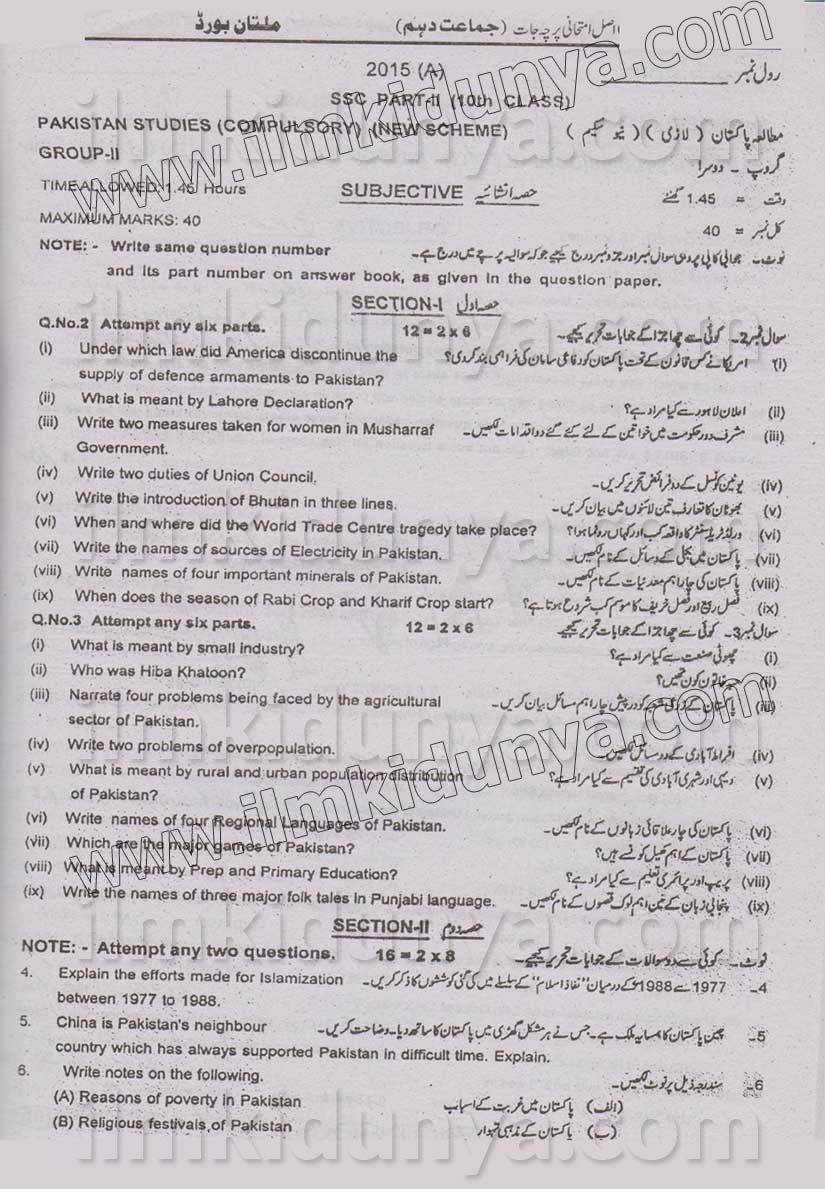 اصل امتحانی پرچہ جات (جماعت دہم) ملتان بورڈ
2015 (A) رول نمبر
SSC PART-II (10th CLASS)
PAKISTAN STUDIES (COMPULSORY) (NEW SCHEME) مطالعہ پاکستان (لازمی) (نیو سکیم)
GROUP-II گروپ - دوسرا
TIME ALLOWED: 1.45 Hours SUBJECTIVE حصہ انشائیہ وقت = 1.45 گھنٹے
MAXIMUM MARKS: 40 کل نمبر = 40
NOTE: - Write same question number نوٹ۔ جوابی کاپی پر وہی سوال نمبر اور جزو نمبر درج کیجیے جو کہ سوالیہ پرچے میں درج ہے۔
and its part number on answer book, as given in the question paper.
SECTION-I حصہ اول
Q.No.2 Attempt any six parts. 12 = 2 x 6 سوال نمبر 2۔ کوئی سے چھ اجزا کے جوابات تحریر کیجیے۔
(i) Under which law did America discontinue the (i) امریکا نے کس قانون کے تحت پاکستان کو دفاعی سامان کی فراہمی بند کر دی؟
supply of defence armaments to Pakistan?
(ii) What is meant by Lahore Declaration? (ii) اعلان لاہور سے کیا مراد ہے؟
(iii) Write two measures taken for women in Musharraf (iii) مشرف دور حکومت میں خواتین کے لئے کئے گئے دو اقدامات لکھیں۔
Government.
(iv) Write two duties of Union Council. (iv) یونین کونسل کے دو فرائض تحریر کریں۔
(v) Write the introduction of Bhutan in three lines. (v) بھوٹان کا تعارف تین لائنوں میں بیان کریں۔
(vi) When and where did the World Trade Centre tragedy take place? (vi) ورلڈ ٹریڈ سنٹر کا واقعہ کب اور کہاں رونما ہوا؟
(vii) Write the names of sources of Electricity in Pakistan. (vii) پاکستان میں بجلی کے وسائل کے نام لکھیں۔
(viii) Write names of four important minerals of Pakistan. (viii) پاکستان کی چار اہم معدنیات کے نام لکھیں۔
(ix) When does the season of Rabi Crop and Kharif Crop start? (ix) فصل ربیع اور فصل خریف کا موسم کب شروع ہوتا ہے؟
Q.No.3 Attempt any six parts. 12 = 2 x 6 سوال نمبر 3۔ کوئی سے چھ اجزا کے جوابات تحریر کیجیے
(i) What is meant by small industry? (i) چھوٹی صنعت سے کیا مراد ہے؟
(ii) Who was Hiba Khatoon? (ii) حبہ خاتون کون تھیں؟
(iii) Narrate four problems being faced by the agricultural (iii) پاکستان کے زرعی شعبے کو درپیش چار اہم مسائل بیان کریں۔
sector of Pakistan.
(iv) Write two problems of overpopulation. (iv) افراط آبادی کے دو مسائل لکھیں۔
(v) What is meant by rural and urban population distribution (v) دیہی اور شہری آبادی کی تقسیم سے کیا مراد ہے؟
of Pakistan?
(vi) Write names of four Regional Languages of Pakistan. (vi) پاکستان کی چار علاقائی زبانوں کے نام لکھیں۔
(vii) Which are the major games of Pakistan? (vii) پاکستان کے اہم کھیل کونسے ہیں؟
(viii) What is meant by Prep and Primary Education? (viii) پریپ اور پرائمری تعلیم سے کیا مراد ہے؟
(ix) Write the names of three major folk tales in Punjabi language. (ix) پنجابی زبان کے تین اہم لوک قصوں کے نام لکھیں۔
SECTION-II حصہ دوم
NOTE: - Attempt any two questions. 16 = 2 x 8 نوٹ۔ کوئی سے دو سوالات کے جوابات تحریر کیجیے۔
4. Explain the efforts made for Islamization 4۔ 1977 سے 1988ء کے درمیان "نفاذ اسلام" کے سلسلے میں کی گئی کوششوں کا ذکر کریں۔
between 1977 to 1988.
5. China is Pakistan's neighbour 5۔ چین پاکستان کا ہمسایہ ملک ہے۔ جس نے ہر مشکل گھڑی میں پاکستان کا ساتھ دیا۔ وضاحت کریں۔
country which has always supported Pakistan in difficult time. Explain.
6. Write notes on the following. 6۔ مندرجہ ذیل پر نوٹ لکھیں۔
(A) Reasons of poverty in Pakistan (الف) پاکستان میں غربت کے اسباب
(B) Religious festivals of Pakistan (ب) پاکستان کے مذہبی تہوار
www.ilmkidunya.com
www.ilmkidunya.com
ilmkidunya.com
ilmkidunya.com
ilmkidunya.com
ilmkidunya.com
ilmkidunya.com
ilmkidunya.com